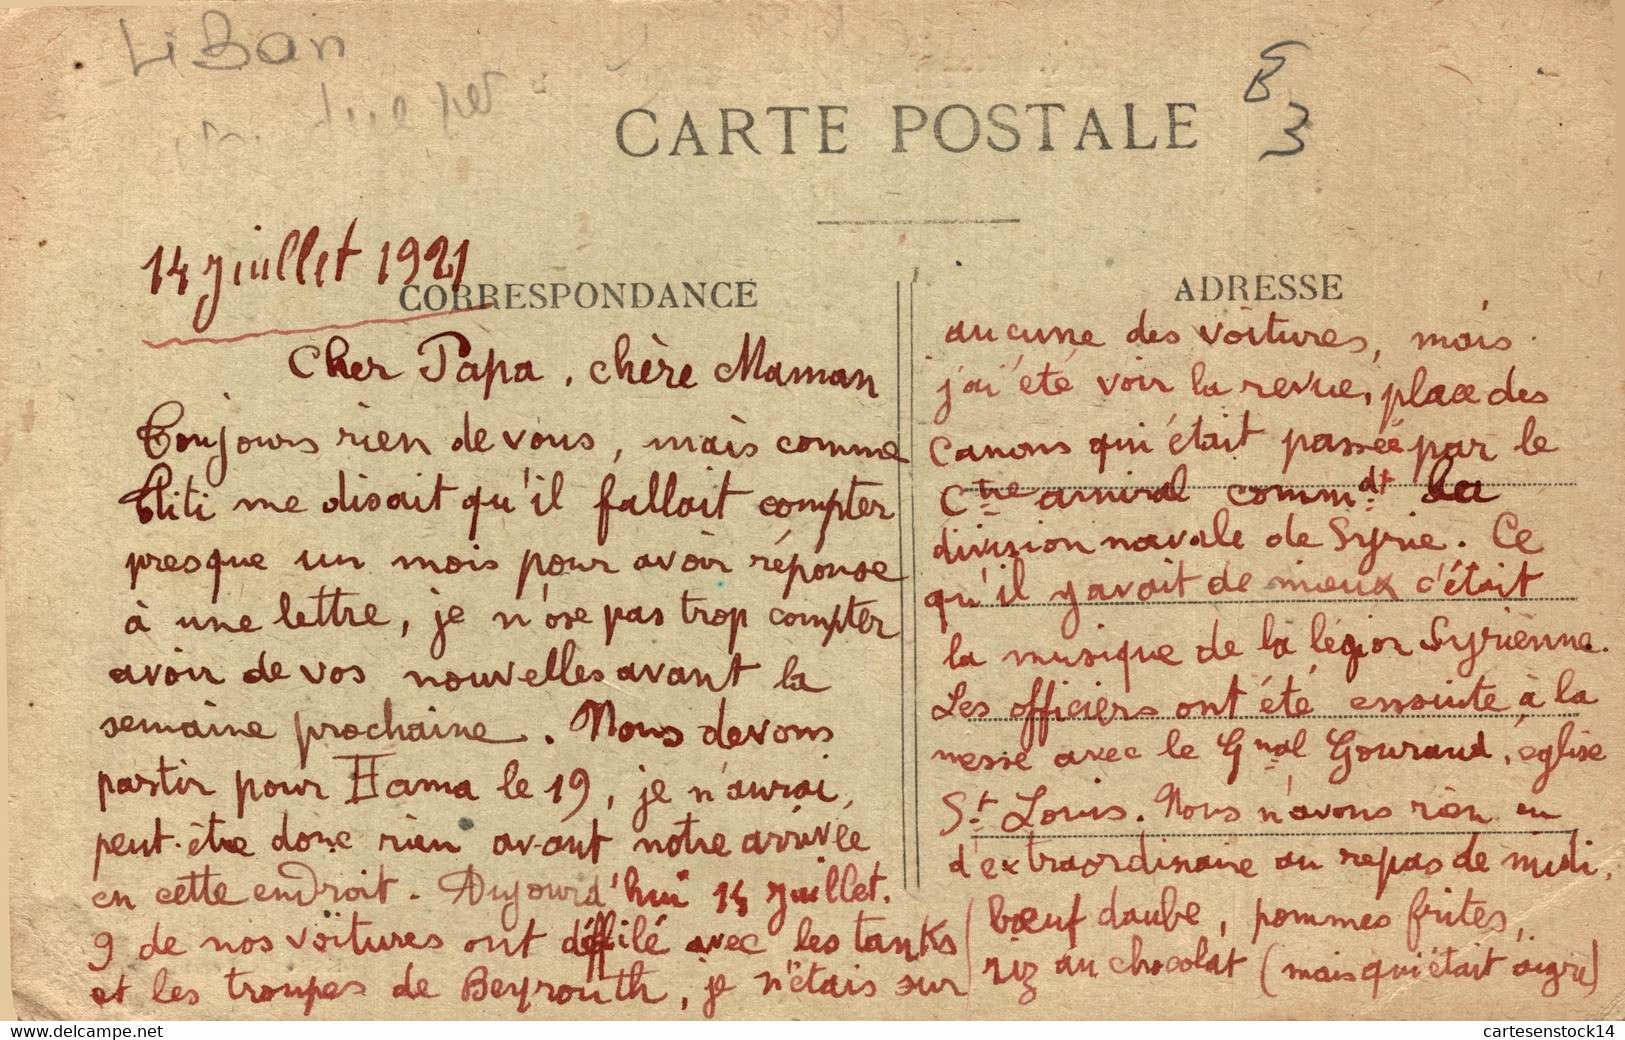 LiBan
B
3
CARTE POSTALE
14 juillet 1921
CORRESPONDANCE
Cher Papa, chère Maman
Toujours rien de vous, mais comme
Titi me disait qu'il fallait compter
presque un mois pour avoir réponse
à une lettre, je n'ose pas trop compter
avoir de vos nouvelles avant la
semaine prochaine. Nous devons
partir pour Hama le 19, je n'aurai,
peut-être donc rien avant notre arrivée
en cette endroit. Aujourd'hui 14 juillet.
9 de nos voitures ont défilé avec les tanks
et les troupes de Beyrouth, je n'étais sur
ADRESSE
aucune des voitures, mais
j'ai été voir la revue, place des
Canons qui était passée par le
Ctre amiral commdt la
division navale de Syrie. Ce
qu'il y avait de mieux c'était
la musique de la légion Syrienne.
Les officiers ont été ensuite à la
messe avec le Gnal Gouraud, église
St. Louis. Nous n'avons rien eu
d'extraordinaire au repas de midi,
bœuf daube, pommes frites,
riz au chocolat (mais qui était aigri)
cartesenstock14.delcampe.net
cartesenstock14